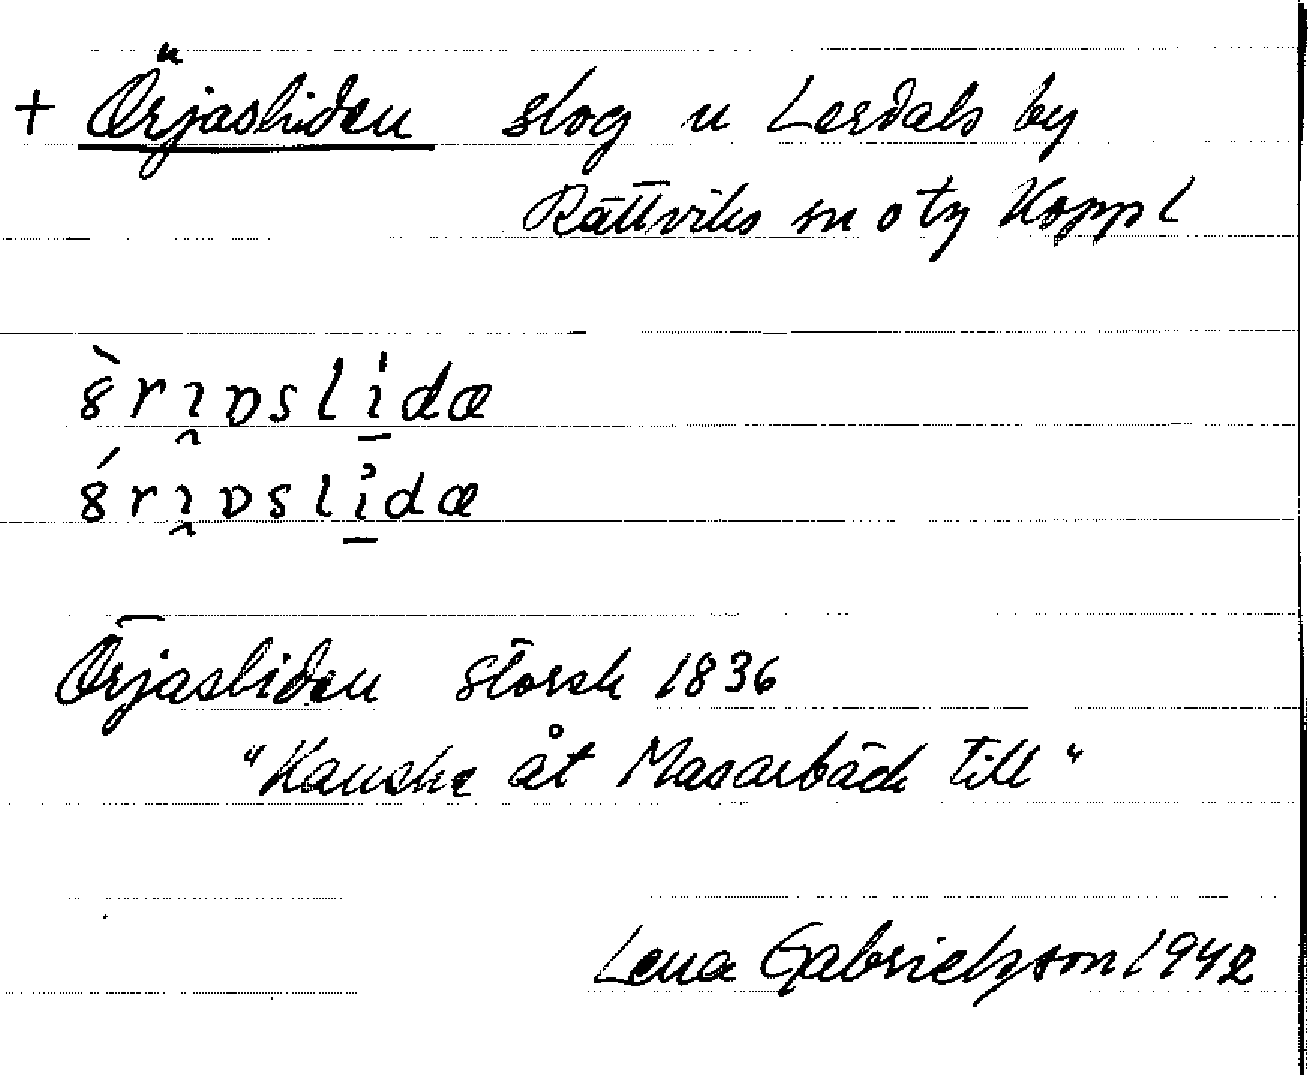 + Örjasliden slog u Lerdals by
Rättviks sn o tg Koppl
8̀rı̯ɒslıdæ
8́rı̯ɒslıdæ
Örjasliden storsk 1836
"Kanske åt Masarbäck till"
Lena Gabrielsson 1942